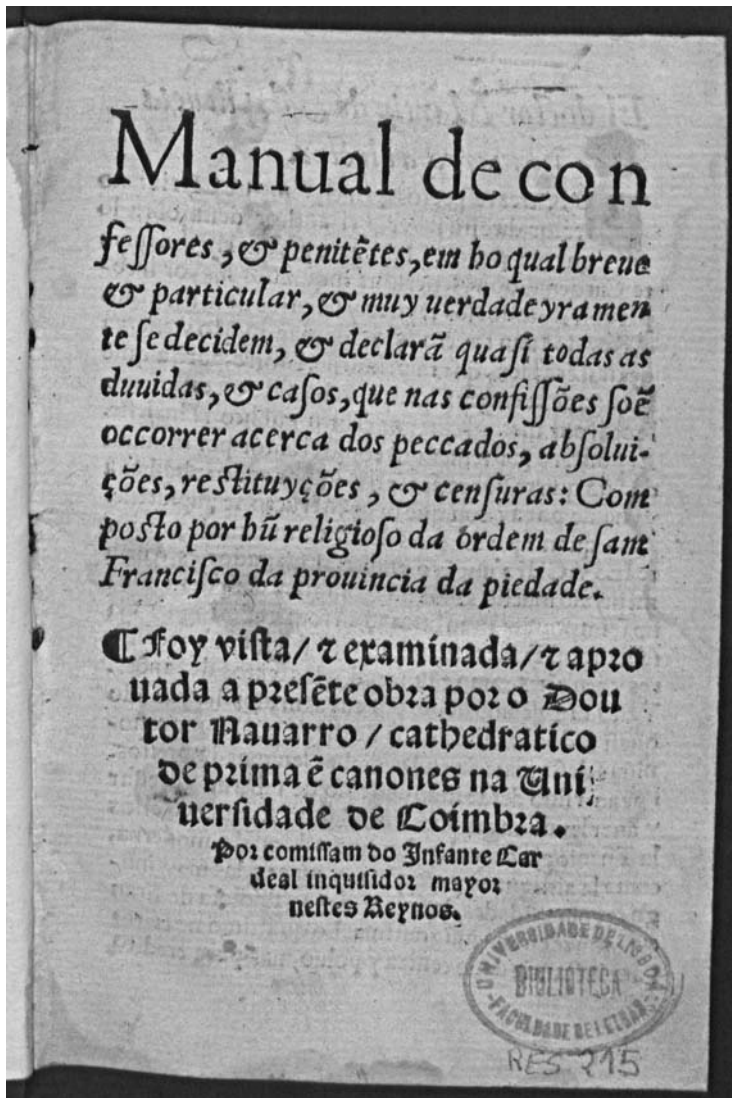 Manual de con
feſſores, & penitẽtes, em ho qual breue
& particular, & muy uerdadeyramen
te ſe decidem, & declarã quaſi todas as
duuidas, & caſos, que nas confiſſões ſoẽ
occorrer acerca dos peccados, abſolui-
ções, reſtituyções, & cenſuras: Com
poſto por hũ religioſo da ordem de ſam
Franciſco da prouincia da piedade.
¶ Foy viſta/ ⁊ examinada/ ⁊ apro
uada a preſẽte obra por o Dou
tor Nauarro / cathedratico
de prima ẽ canones na Uni
uerſidade de Coimbra.
Por comiſſam do Infante Car
deal inquiſidor mayor
neſtes Reynos.
UNIVERSIDADE DE LISBOA
BIBLIOTECA
FACULDADE DE LETRAS
RES 215